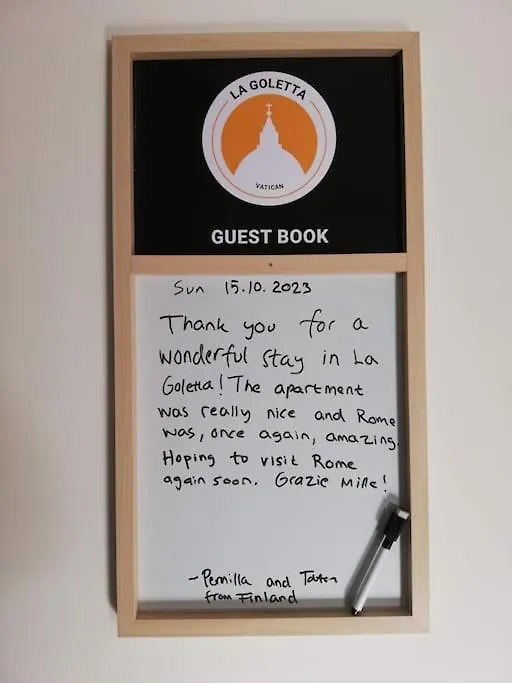 LA GOLETTA
VATICAN
GUEST BOOK
Sun 15.10.2023
Thank you for a
wonderful stay in La
Goletta! The apartment
was really nice and Rome
was, once again, amazing.
Hoping to visit Rome
again soon. Grazie Mille!
- Pernilla and
from Finland